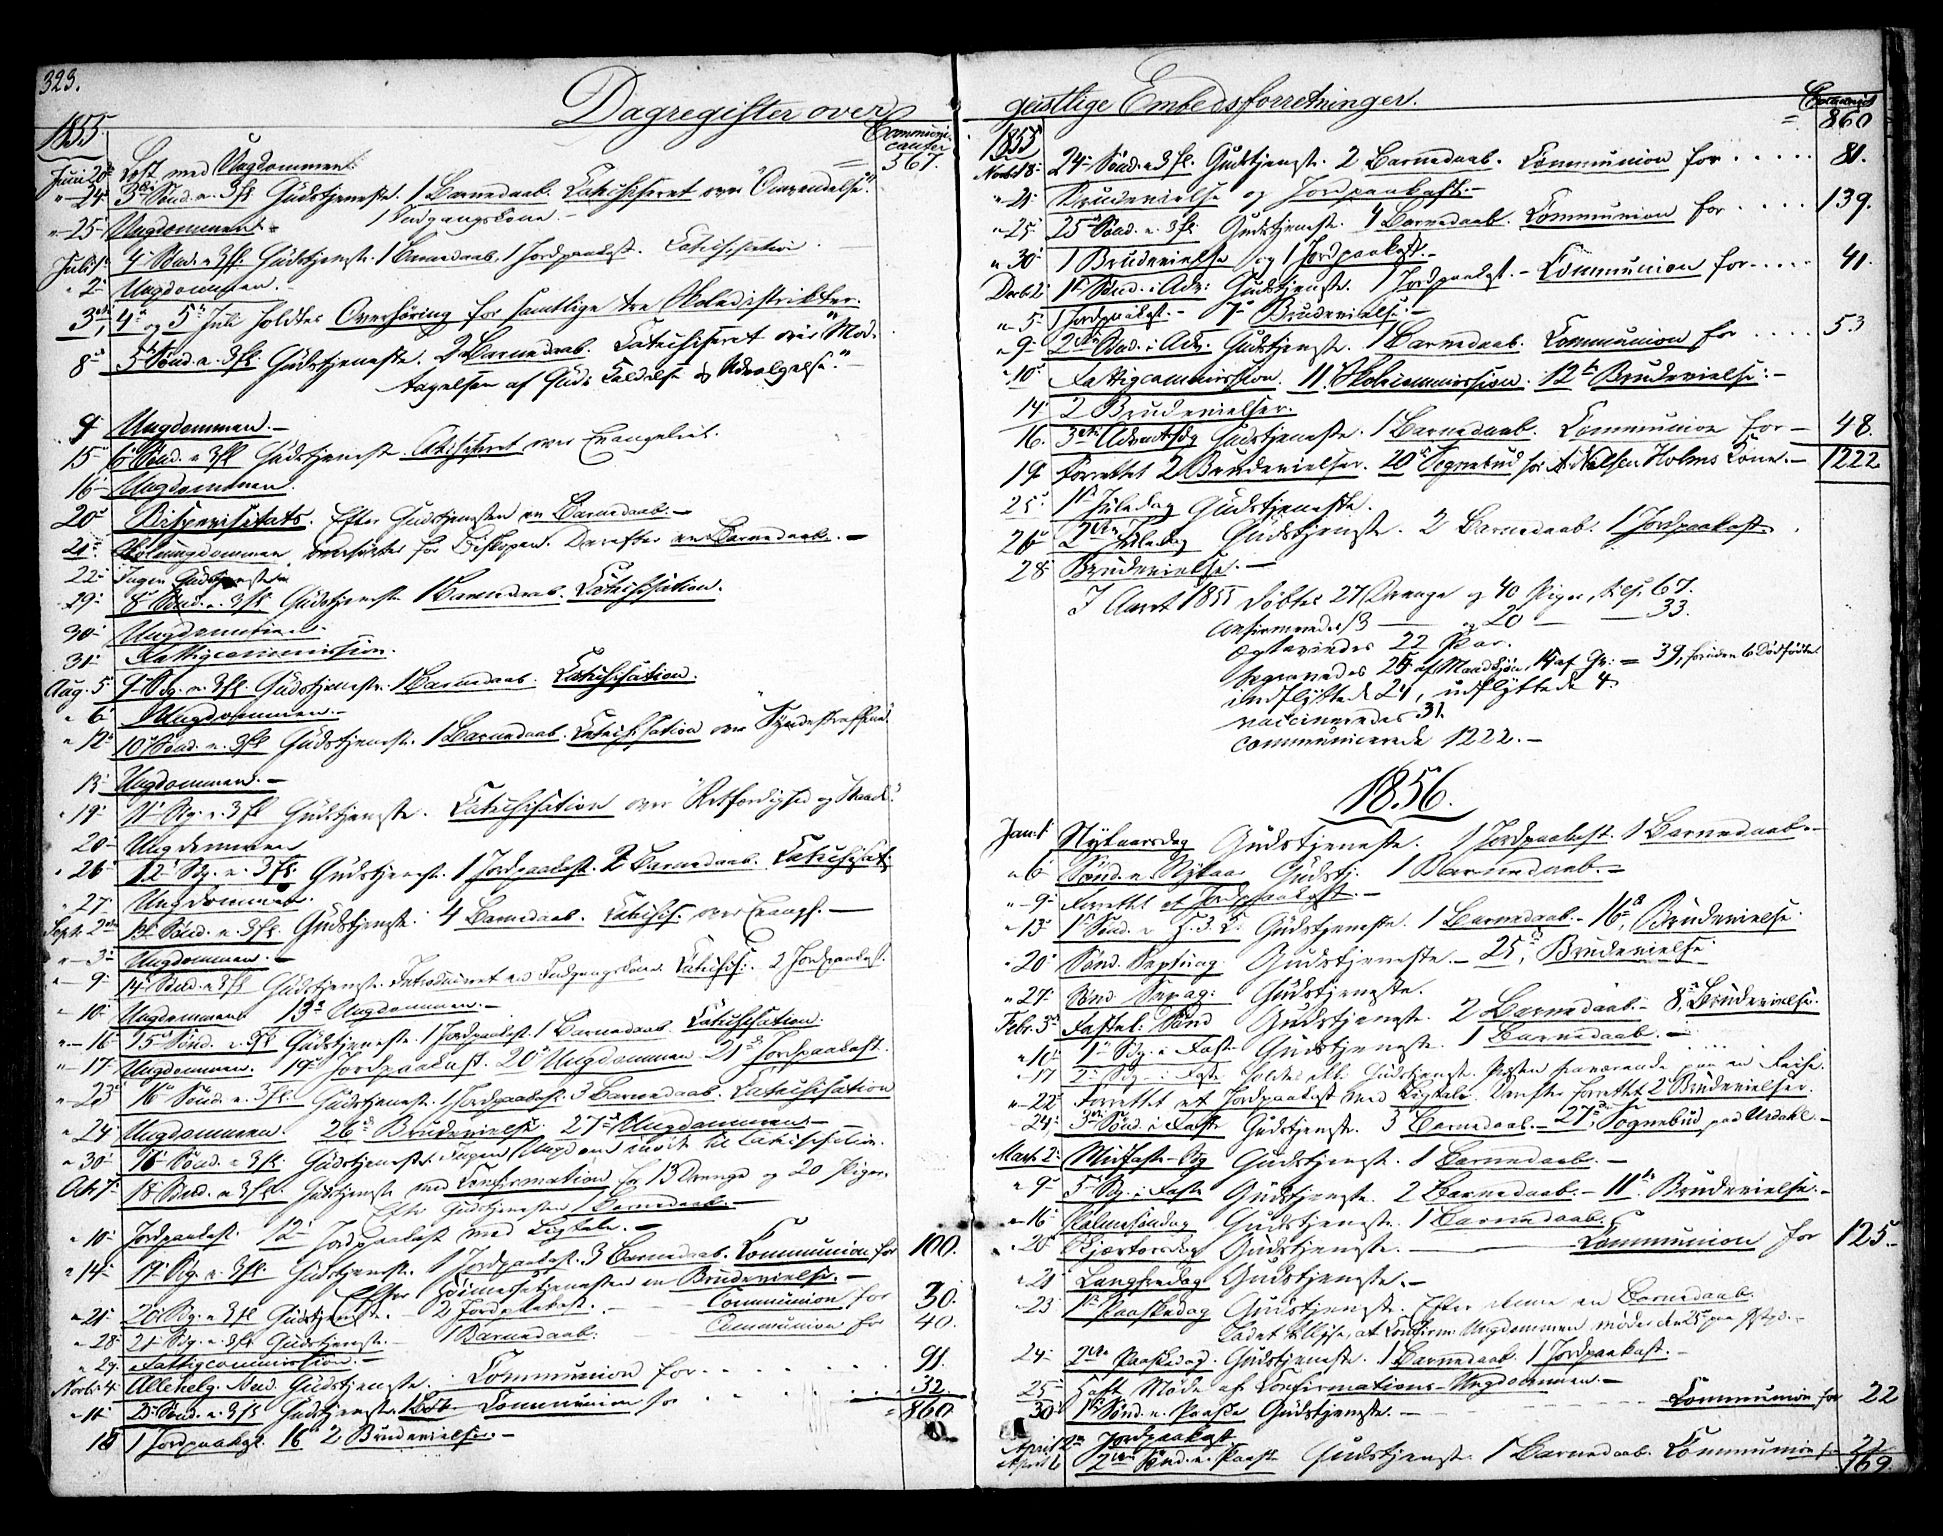 323.
Dagregister over
1855
Communi-
canter
567.
Juni 20de Løst med Ungdommen
"-24- 3die Sønd. n. 3f. Gudstjeneste. 1 Barnedaab. Catechiseret over "Omvendelse".
1 Indgangskone.-
"-25- Ungdommen.-
Juli 1- 4- Sønd. n. 3f. Gudstjeneste. 1 Barnedaab. 1 Jordpaakast. Catechisation.
" 2- Ungdommen.
3die, 4- og 5- Juli holdtes Overhøring for samtlige tre Skoledistrikter.
8- 5- Sønd. n. 3f. Gudstjeneste. 2 Barnedaab. Catechiseret over "Mod-
tagelsen af Guds Kaldelse og Udvælgelse."
9- Ungdommen.-
15- 6- Sønd. n. 3f. Gudstjeneste. Catechiseret over Evangeliet.
16- Ungdommen.
20- Bispevisitats. Efter Gudstjenesten en Barnedaab.-
21- Skoleungdommen overhørtes for Biskopen. Derefter en Barnedaab.-
22- Ingen Gudstjeneste
29- 8- Sønd. n. 3f. Gudstjeneste 1 Barnedaab. Catechisation.
30- Ungdommen.
31- Fattigcommission.
Aug. 5- 9- Sdg. n. 3f. Gudstjeneste. 1 Barnedaab. Catechisation.
" 6- Ungdommen.-
" 12- 10- Sønd. n. 3f. Gudstjeneste. 1 Barnedaab. Catechisation over "Syndestraffene".
13- Ungdommen.-
" 19- 11- Sdg. n. 3f. Gudstjeneste. Catechisation over "Retfærdighed og Naade".
20- Ungdommen
" 26- 12- Sdg. n. 3f. Gudstjeneste. 1 Jordpaakast. 2 Barnedaab. Catechisat:
" 27- Ungdommen.
Septr. 2den 13- Sønd. n. 3f. Gudstjeneste. 4 Barnedaab. Catechis. over Evangel.-
"- 3- Ungdommen.-
"- 9- 14- Sønd. n. 3f. Gudstjeneste. Introduceret en Indgangskone. Catechis: 2 Jordpaakast.
"- 10- Ungdommen. 13- Ungdommen.-
"- 16- 15- Sønd. n. 3f. Gudstjeneste. 1 Jordpaakast. 1 Barnedaab. Catechisation.
"- 17- Ungdommen. 19- Jordpaakast. 20- Ungdommen. 21- Jordpaakast.
"- 23- 16- Sønd. n. 3f. Gudstjeneste. 1 Jordpaakast. 3 Barnedaab. Catechisation
" 24 Ungdommen. 26- Brudevielse. 27- Ungdommen.-
" 30- 16- Sønd. n. 3f. Gudstjeneste. Ingen Ungdom mødt til Catechisation.
Oct. 7- 18- Sønd. n. 3f. Gudstjeneste med Confirmation for 13 Drenge og 20 Piger.
Efter Gudstjenesten 1 Barnedaab.-
" 10- Jordpaakast. 12- Jordpaakast med Ligtale.-
" 14- 19- Sdg. n. 3f. Gudstjeneste. 1 Jordpaakast. 3 Barnedaab. Communion for 100.
Efter Høimessetjenesten en Brudevielse.-
" 21- 20- Sdg. n. 3f. Gudstjeneste.- 2 Jordpaakast. Communion for 30.
" 28- 21- Sdg. n. 3f. Gudstjeneste.- 1 Barnedaab. Communion for 40.
" 29- Fattigcommission.-
Novbr. 4- Allehelg. Sønd. Gudstjeneste. Communion for 91.
" 11- 23- Sønd. n. 3f. Gudstjeneste Communion for 32.
= 860
18 1 Jordpaakast. 16- 2 Brudevielser.-
geistlige Embedsforretninger.
Communic.
= 860
1855
Novbr. 18- 24- Sønd. n. 3f. Gudstjeneste. 2 Barnedaab. Communion for 81.
" 21- Brudevielse og Jordpaakast.-
" 25- 25- Sønd. n. 3f. Gudstjeneste 4 Barnedaab. Communion for 139.
" 30- 1 Brudevielse og 1 Jordpaakast.-
Decbr. 2- 1ste Sønd. i Adv: Gudstjeneste. 1 Jordpaakast.- Communion for 41.
"- 5- 1 Jordpaakast.- 7- Brudevielse.-
" 9- 2den Sønd. i Adv. Gudstjeneste. 1 Barnedaab. Communion for 53
" 10- Fattigcommission. 11. Skolecommission. 12te Brudevielse.-
14- 2 Brudevielser.
16. 3die Adventssdg Gudstjeneste. 1 Barnedaab. Communion for- 48.
19- Forrettet 2 Brudevielser. 20- Sognebud for A. Nielsen Holms Kone.- 1222
25- 1ste Juledag Gudstjeneste.
26- 2den Juledag Gudstjeneste. 2 Barnedaab. 1 Jordpaakast.
28- Brudevielse.-
I Aaret 1855 døbtes 27 Drenge og 40 Piger, tils. 67.
confirmeredes 13 - og 20 - - 33.
egteviedes 22 Par.
begravedes 25 af Mandkjøn, 14 af Qv: = 39, foruden 6 dødfødte
indflyttede 24, udflyttede 4.
vaccineredes 31.
communicerede 1222.-
1856.
Jan. 1- Nytaarsdag Gudstjeneste. 1 Jordpaakast 1 Barnedaab.-
" 6- Sønd. n. Nytaar Gudstj. 1 Barnedaab.-
"- 9- Forrettet et Jordpaakast.-
" 13- 1- Sønd. n H.3.K. Gudstjeneste. 1 Barnedaab.- 16-, Brudevielse.
" 20- Sønd. Septuag. Gudstjeneste.- 25-, Brudevielse
" 27- Sønd. Sexag: Gudstjeneste.
Febr. 3- Fastel: Sønd Gudstjeneste. 2 Barnedaab.- 8- Brudevielse.
" 10- 1- Sdg. i Faste Gudstjeneste. 1 Barnedaab.-
" 17 2- Sdg i Faste holdtes ikke Gudstjeneste. Præsten fraværende paa en Reise.
"- 22- Forrettet et Jordpaakast med Ligtale. Derefter forrettet 2 Brudevielser.
- 24- 3die Sønd. i Faste Gudstjeneste. 3 Barnedaab.- 27-, Sognebud paa Urdahl.-
Marts 2- Midfaste-Sdg Gudstjeneste. 1 Barnedaab.-
" 9- 5- Sdg. i Faste Gudstjeneste. 2 Barnedaab.- 11te Brudevielse.-
"- 16- Palmesøndag Gudstjeneste. 1 Barnedaab.
" 20- Skjærtorsdag Gudstjeneste.- Communion for 125.-
" 21 Langfredag Gudstjeneste.-
" 23 1ste Paaskedag Gudstjeneste. Efter denne en Barnedaab.
Ladet tillyse, at Confirm: Ungdommen møder den 25- paa
24- 2den Paaskedag. Gudstjeneste. 1 Barnedaab. 1 Jordpaakast.-
25- Havt Møde af Confirmations-Ungdommen.-
30- 1ste Sønd. n. Paaske Gudstjeneste.- Communion for 22
April 2- Jordpaakast
April 6 2den Sønd. n. Paaske Gudstjeneste 1 Barnedaab. Communion for 22
169.